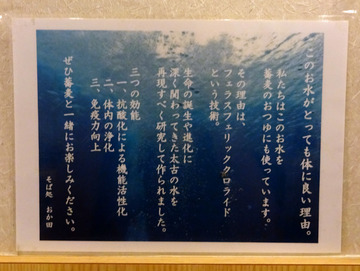 このお水がとっても体に良い理由。
私たちはこのお水を
蕎麦のおつゆにも使っています。
その理由は、
フェラスフェリッククロライド
という技術。
生命の誕生や進化に
深く関わってきた太古の水を
再現すべく研究して作られました。
三つの効能
一、抗酸化による機能活性化
二、体内の浄化
三、免疫力向上
ぜひ蕎麦と一緒にお楽しみください。
そば処 おか田